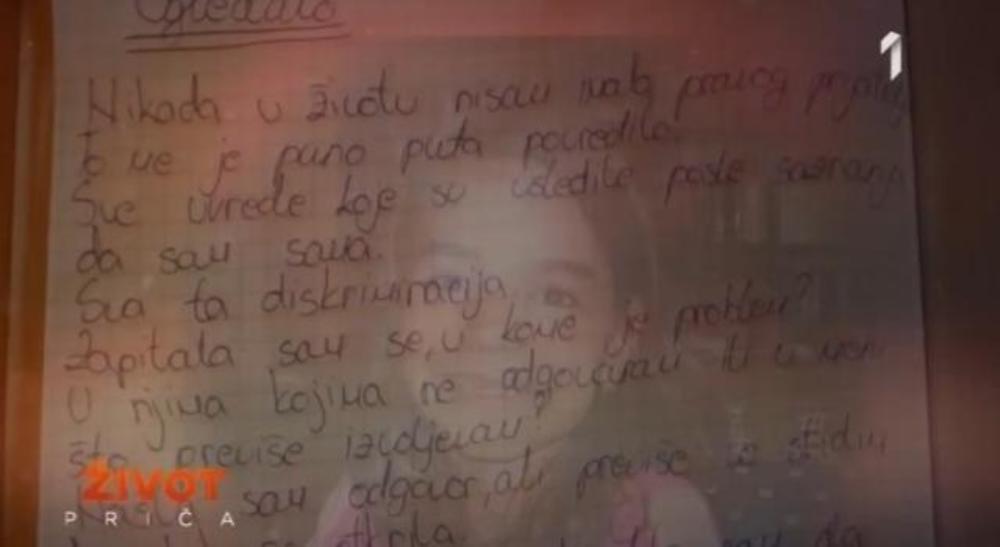 Ogledalo
1
Nikada u životu nisam imala pravog
To me je puno puta povredilo.
Sve uvrede koje su usledile posle saznanja
da sam sama.
Sva ta diskriminacija
Zapitala sam se, u kome je problem?
U njima kojima ne odgovaram ili u meni
što previše izdvajam?
sam odgovor, ali previše se stidim,
da
ŽIVOT
PRIČA